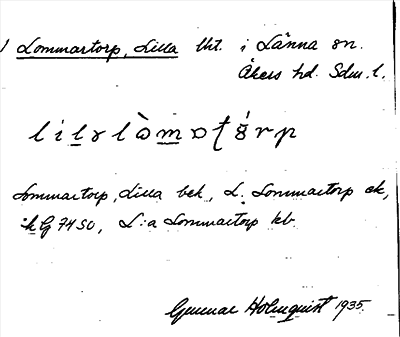 Lommartorp, Lilla lht. i Länna sn.
Åkers hd. Sdm. l.
Lommartorp, Lilla bek, L. Lommartorp ek,
L:a Lommartorp kb
Gunnar Holmquist 1935.